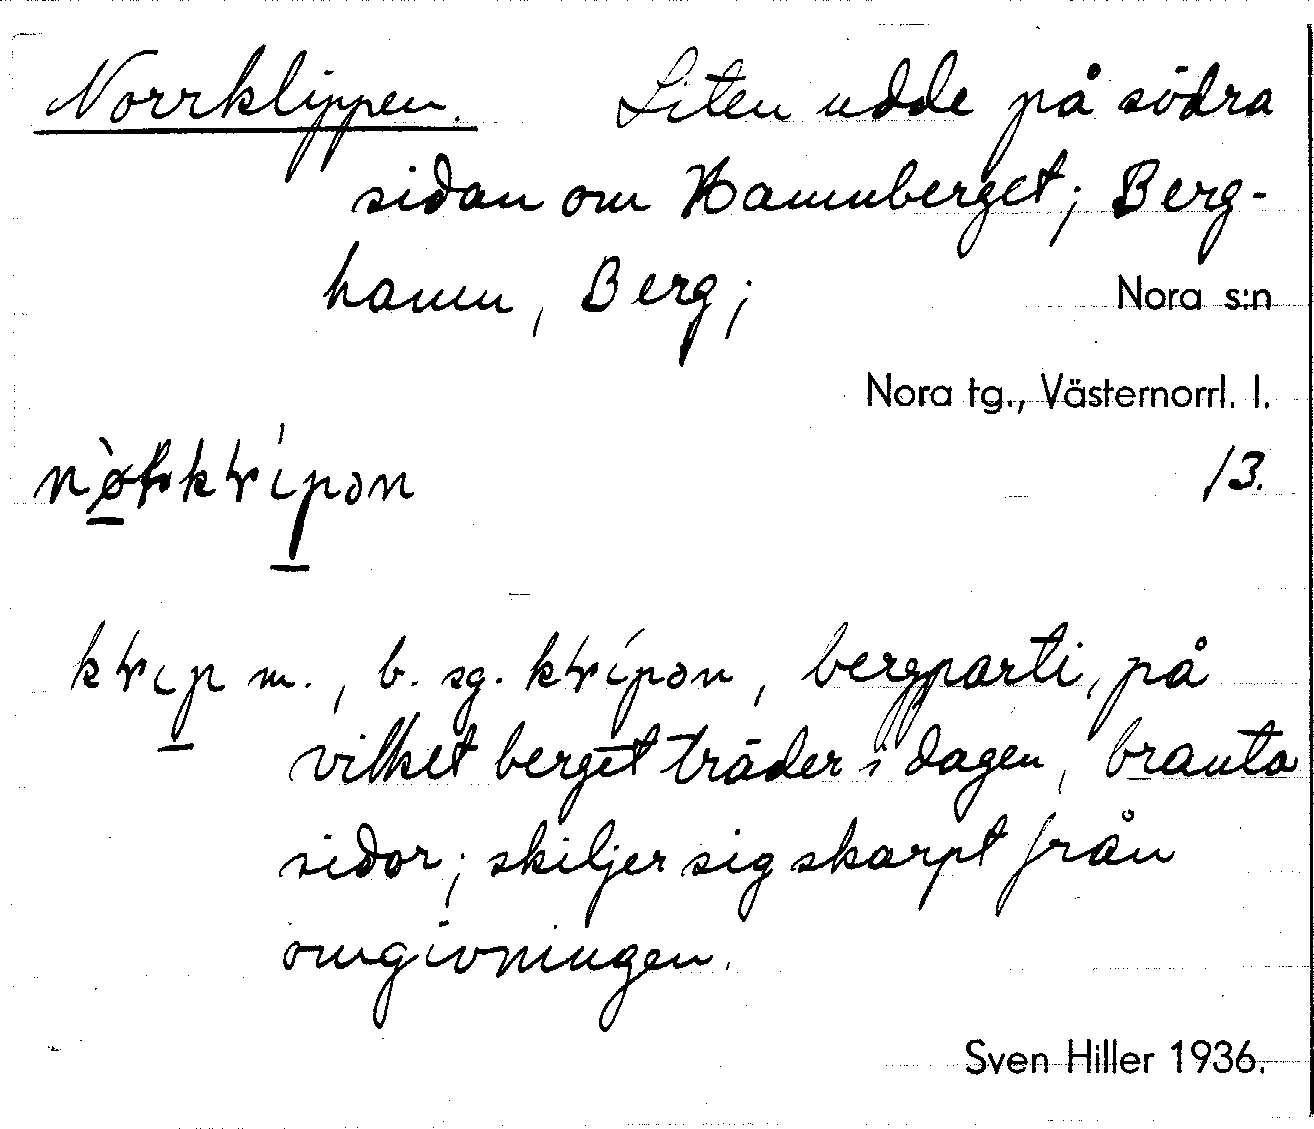 Norrklippen. Liten udde på södra
sidan om Hamnberget; Berg-
hamn, Berg; Nora s:n
Nora tg., Västernorrl. l.
13.
m., b. sg. , bergparti, på
vilket berget träder i dagen, branta
sidor; skiljer sig skarpt från
omgivningen.
Sven Hiller 1936.